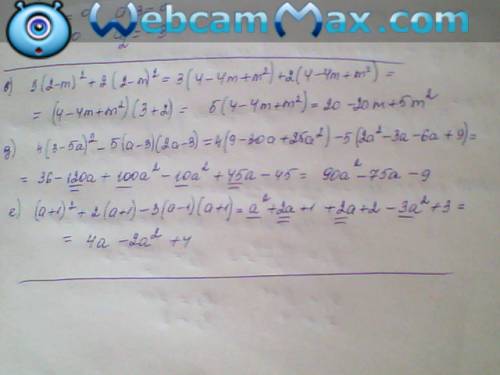 WebcamMax.com
в) 3(2-m)² + 2(2-m)² = 3(4-4m+m²) + 2(4-4m+m²) =
= (4-4m+m²)(3+2) = 5(4-4m+m²) = 20-20m+5m²
g) 4(3-5a)² - 5(a-3)(2a-3) = 4(9-30a+25a²) - 5(2a²-3a-6a+9) =
= 36-120a+100a²-10a²+45a-45 = 90a²-75a-9
е) (a+1)² + 2(a+1) - 3(a-1)(a+1) = a²+2a+1+2a+2-3a²+3 =
= 4a-2a²+4